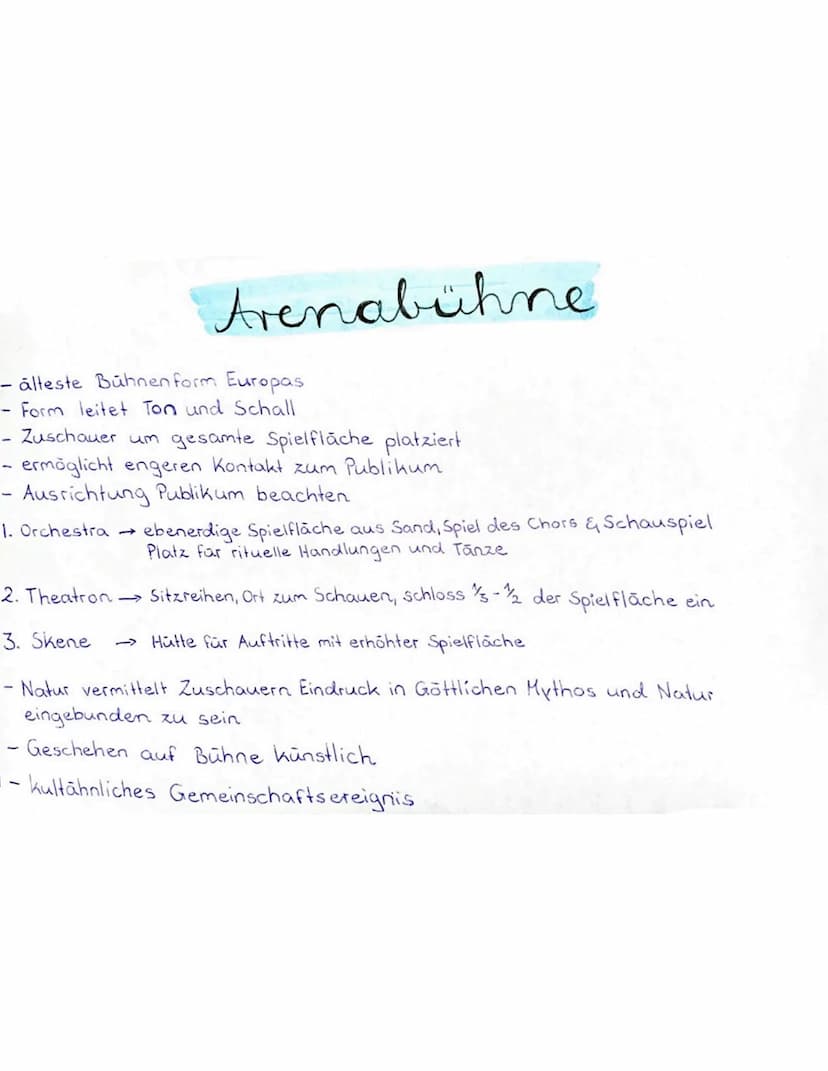 Arenabühne
- älteste Bühnenform Europas
- Form leitet Ton und Schall
- Zuschauer um gesamte Spielfläche platziert
- ermöglicht engeren Kontakt zum Publikum
- Ausrichtung Publikum beachten
1. Orchestra → ebenerdige Spielfläche aus Sand, Spiel des Chors & Schauspiel
Platz für rituelle Handlungen und Tänze
2. Theatron → Sitzreihen, Ort zum Schauen, schloss 1/3 - 1/2 der Spielfläche ein
3. Skene → Hütte für Auftritte mit erhöhter Spielfläche
- Natur vermittelt Zuschauern Eindruck in Göttlichen Mythos und Natur
eingebunden zu sein
- Geschehen auf Bühne künstlich
- kultähnliches Gemeinschaftsereignis